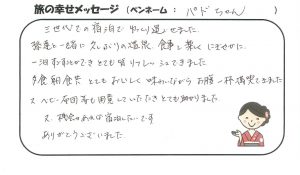 旅の幸せメッセージ (ペンネーム: パドちゃん)
三世代での宿泊でゆっくり過せました。
孫達と一緒に久しぶりの温泉、食事と楽しくにぎやかに
一泊ですがとてもリフレッシュできました
夕食朝食共とてもおいしく味わいながらお腹一杯満喫できました
又、ベビー布団等も用意していただきとても助かりました。
又、機会があれば宿泊したいです
ありがとうございました。